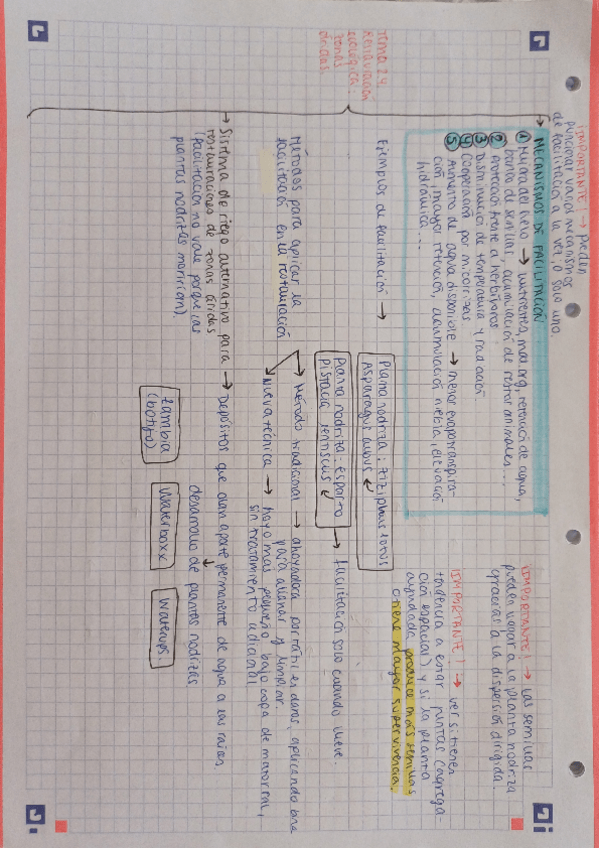 Tema 24.
Restauración
ecológica:
zonas
áridas.
¡IMPORTANTE! → Pueden
funcionar varios mecanismos
de facilitación a la vez o solo uno.
→ MECANISMOS DE FACILITACIÓN
① Mejora del suelo → nutrientes, mat. org, retenció de agua,
banco de semillas, acumulación de restos animales...
② Protección frente a herbívoros
③ Disminució de temperatura y radiación.
④ Cooperación por micorrizas
⑤ Aumento de agua disponible → menor evapotranspira-
ción, mayor retención, acumulación niebla, elevación
hidráulica...
¡IMPORTANTE! → Las semillas
pueden llegar a la planta nodriza
gracias a la dispersión dirigida.
¡IMPORTANTE! → Ver si tienen
tendencia a estar juntas (agrega-
ción espacial) y si la planta
ayudada produce más semillas
o tiene mayor supervivencia.
Ejemplos de facilitación →
Planta nodriza: Ziziphus lotus
Asparagus albus ↙
Planta nodriza: Esparto
Pistacia lentiscus ↙
→ Facilitación solo cuando llueve.
Métodos para aplicar la
facilitación en la restauración
→ Método tradicional → ahoyadora portátil es daños, aplicando
para allanar y limpiar.
→ Nueva técnica → hoyo más pequeño bajo copa de matorral,
sin tratamiento adicional
→ Sistema de riego alternativo para
restauraciones de zonas áridas
(facilitación no vale porque las
plantas nodrizas morirían)
→ Depósitos que dan aporte permanente de agua a las raíces,
desarrollo de plantas nodrizas
Waterboxx